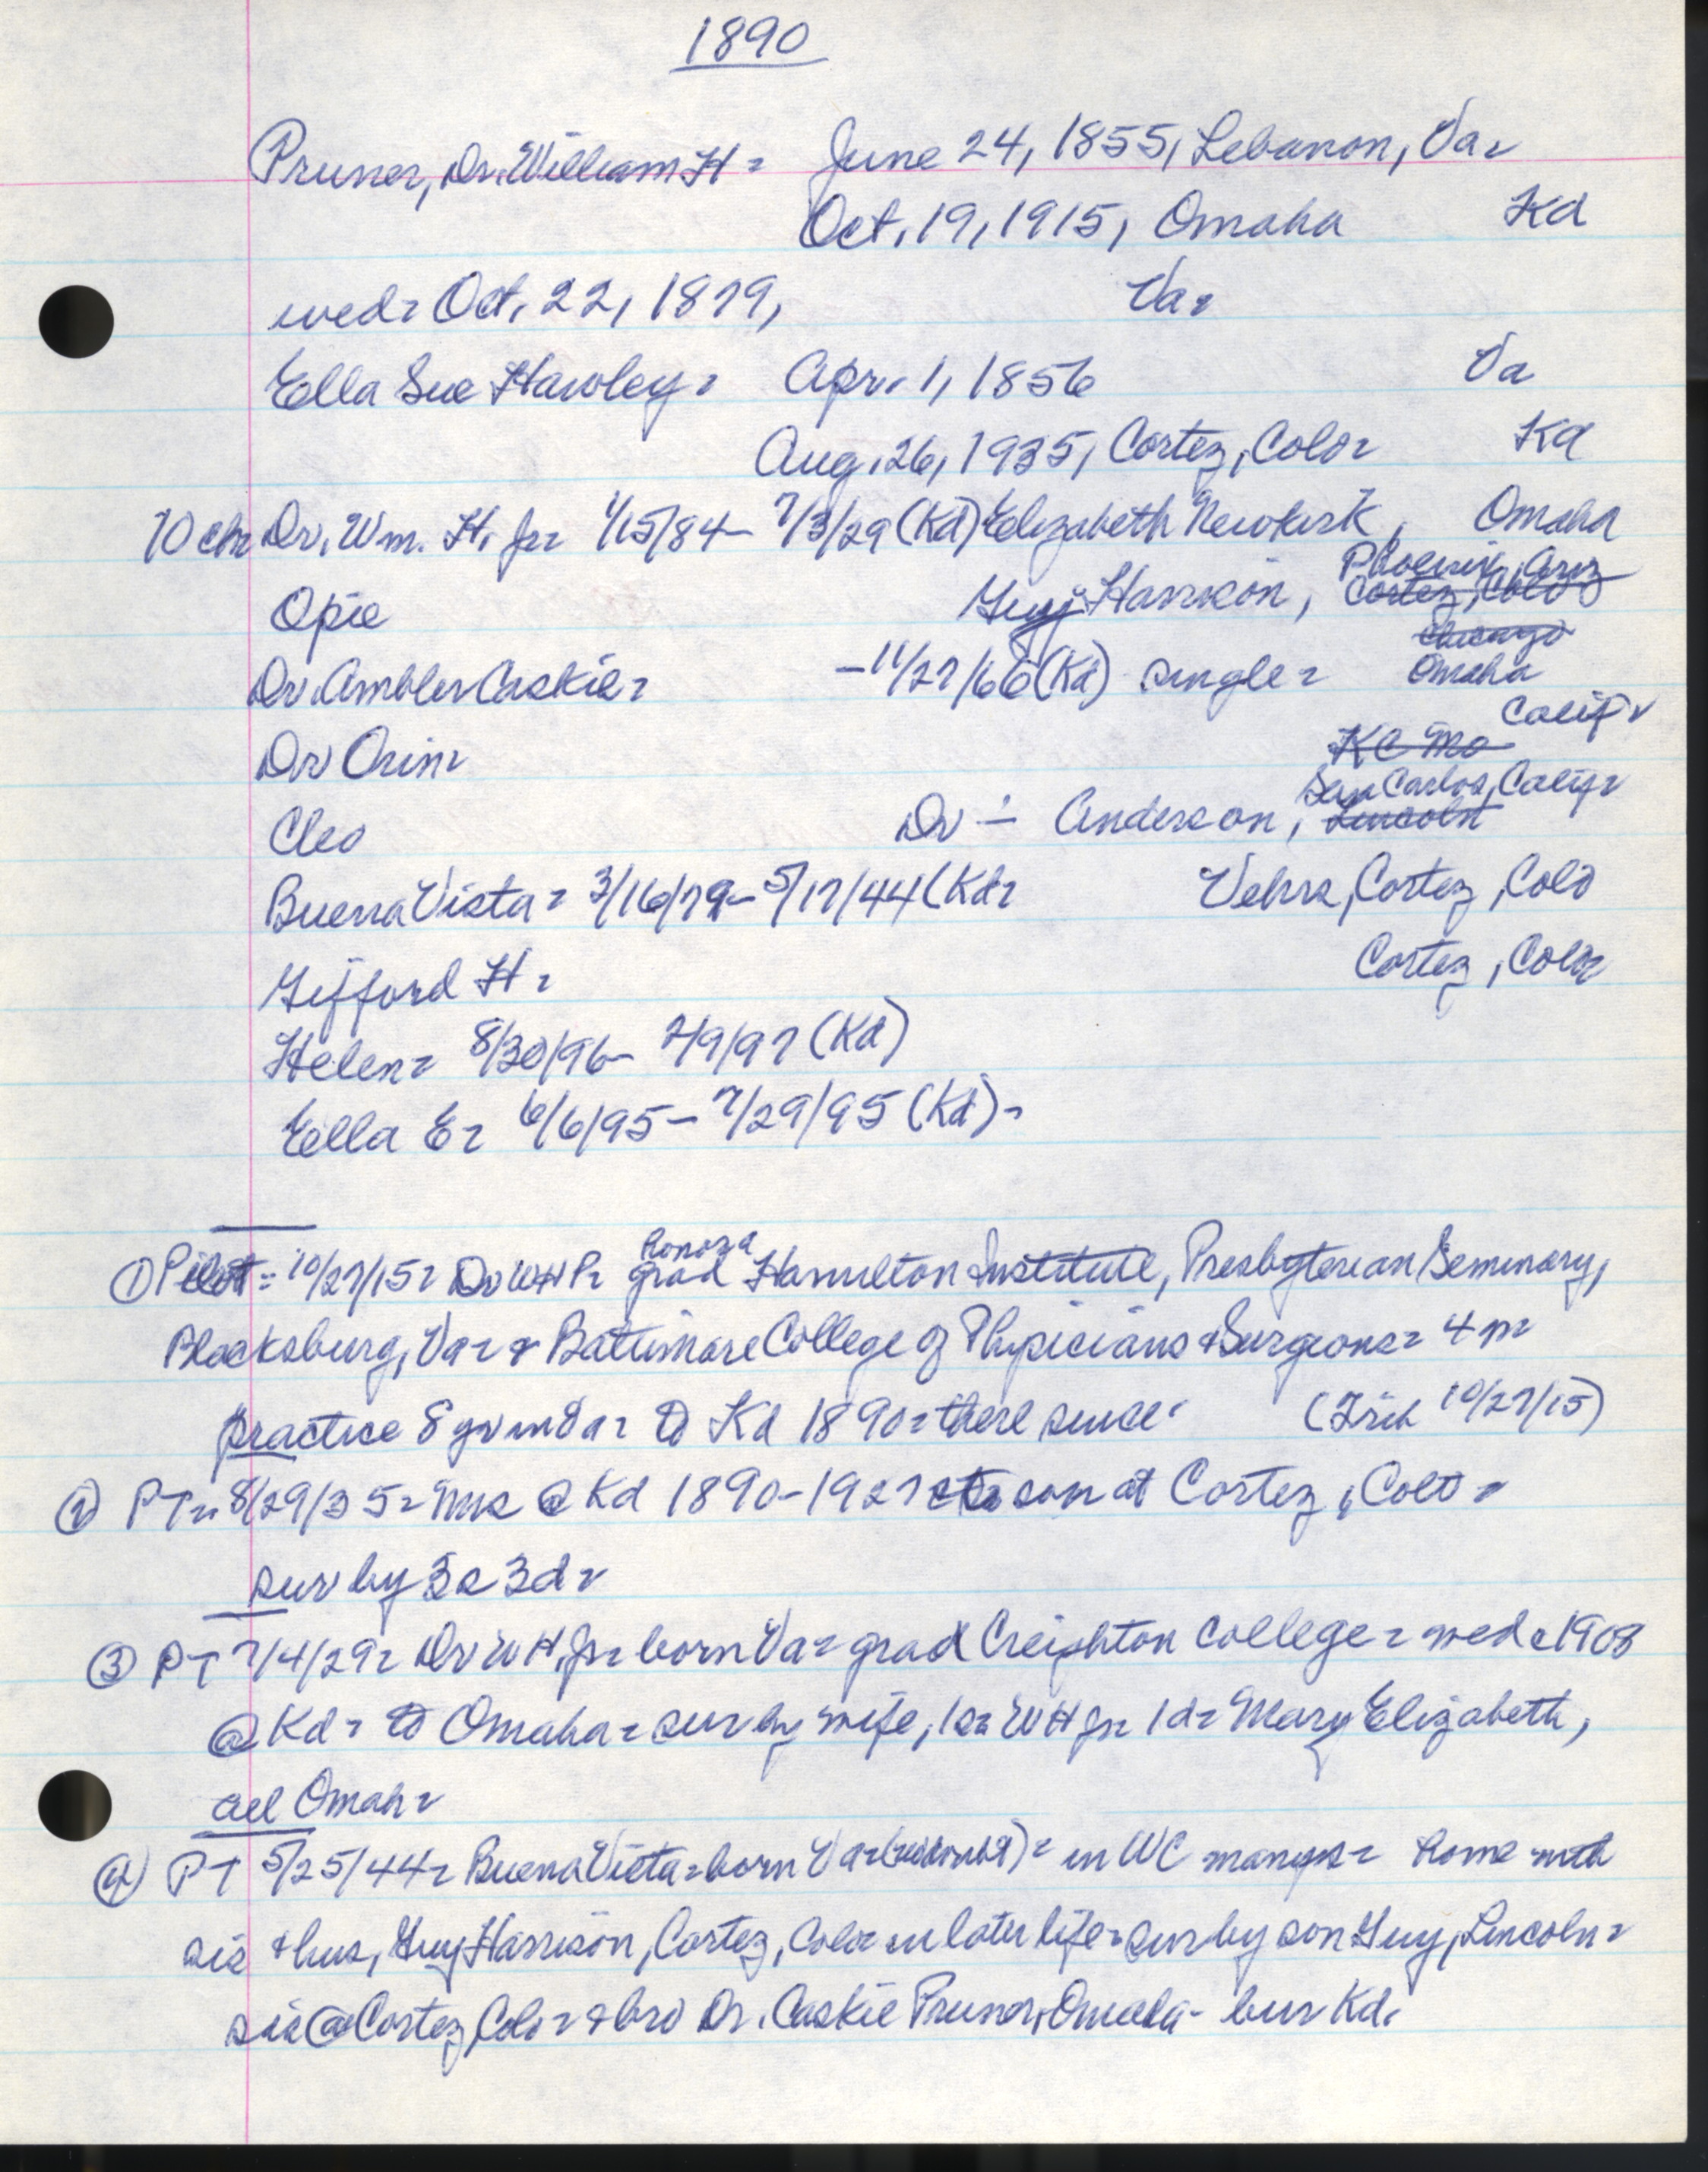 1890
Pruner, Dr. William H. June 24, 1855, Lebanon, Va.
Oct. 19, 1915, Omaha Kd
wed. Oct. 22, 1879, Va.
Ella Sue Hawley. Apr. 1, 1856 Va
Aug. 26, 1935, Cortez, Colo. Kd
10 chr Dr. Wm. H. Jr. 1/15/84 - 7/3/29 (Kd) Elizabeth Newkirk, Omaha
Phoenix, Ariz
Opie Guy Harrison, Cortez, Colo
Chicago
Dr. Ambler Caskie. - 11/27/66 (Kd) single. Omaha
Calif.
Dr Orin. KC Mo
San Carlos, Calif.
Cleo Dr - Anderson, Lincoln
Buena Vista. 3/16/79 - 5/17/44 (Kd. Vehrs, Cortez, Colo
Gifford H. Cortez, Colo.
Helen. 8/30/96 - 2/9/97 (Kd)
Ella E. 6/6/95 - 7/29/95 (Kd).
honors
① Pilot = 10/27/15. Dr WHP. grad Hamilton Institute, Presbyterian Seminary,
Blacksburg, Va. & Baltimore College of Physicians & Surgeons. 4 m.
practice 8 yr in Va. to Kd 1890. there since. ( 10/27/15)
② PT. 8/29/35. Mrs @ Kd 1890-1927 to son at Cortez, Colo.
sur by 3 s 3 d.
③ PT 7/4/29. Dr W H, Jr. born Va. grad Creighton College. wed c 1908
@ Kd. to Omaha. sur by wife, 1 s. W H Jr. 1 d. Mary Elizabeth,
all Omah.
④ PT 5/25/44. Buena Vista. born Va. in WC many yrs. home with
sis & hus, Guy Harrison, Cortez, Colo. in later life. sur by son Guy, Lincoln.
sis @ Cortez, Colo. & bro Dr. Caskie Pruner, Omaha - bur Kd.